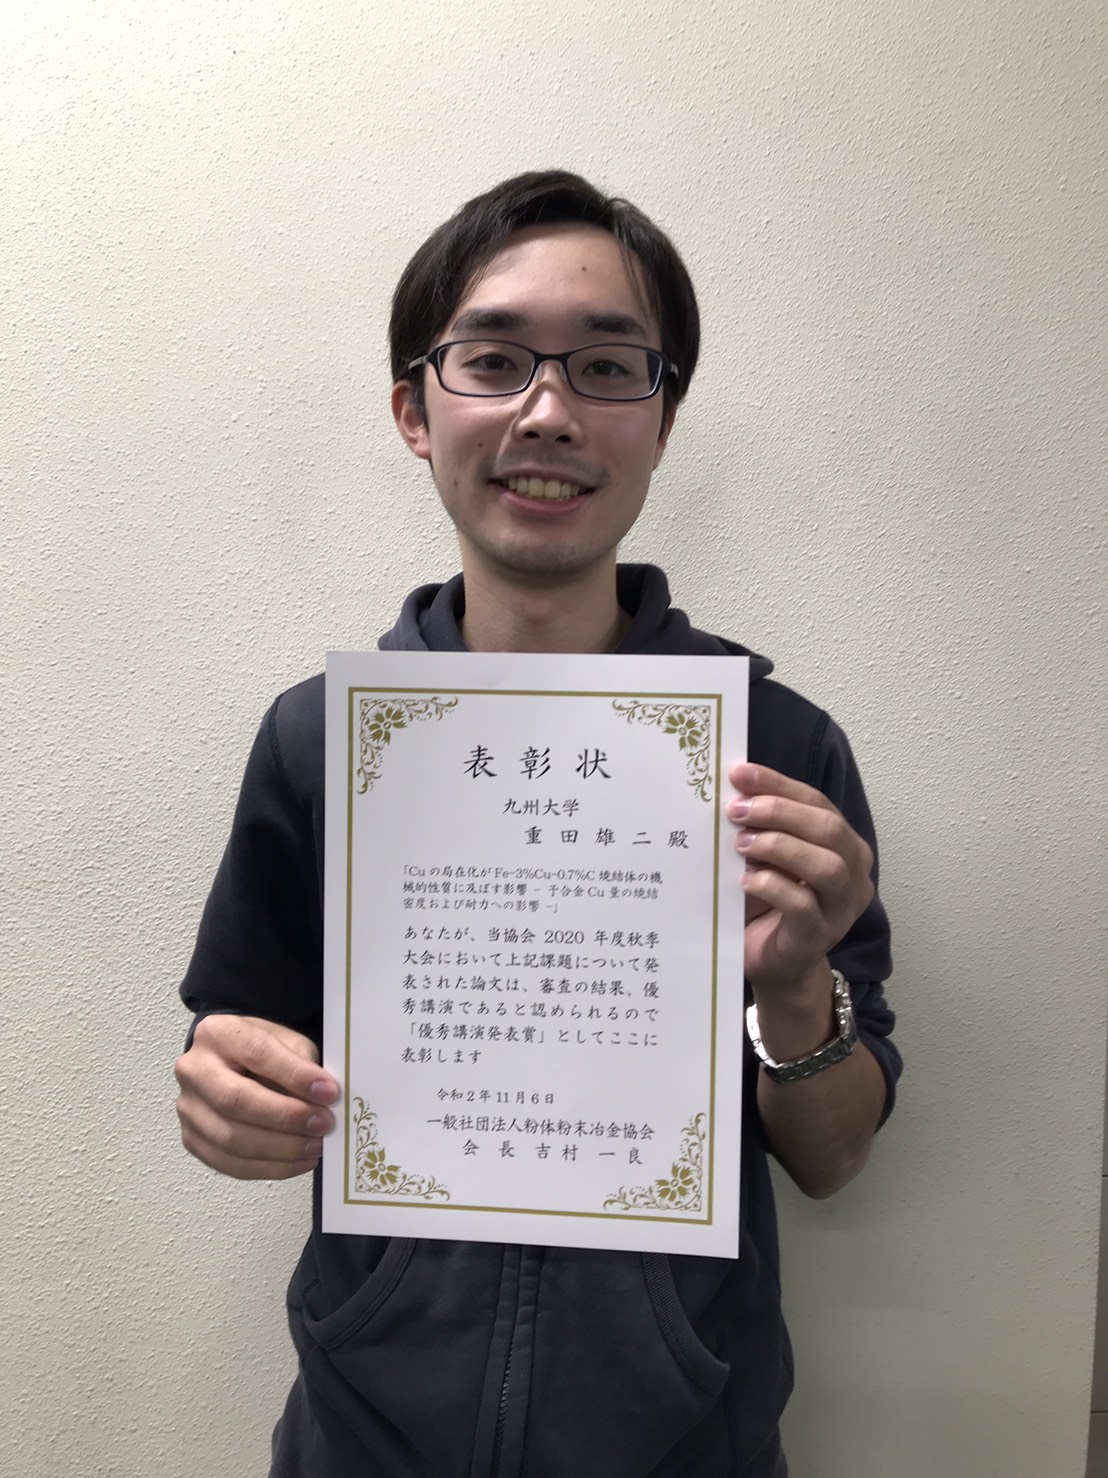 表彰状
九州大学
重田雄二殿
「Cuの局在化がFe-3%Cu-0.7%C焼結体の機
械的性質に及ぼす影響 - 予合金Cu量の焼結
密度および耐力への影響 -」
あなたが、当協会 2020 年度秋季
大会において上記課題について発
表された論文は、審査の結果、優
秀講演であると認められるので
「優秀講演発表賞」としてここに
表彰します
令和2年11月6日
一般社団法人粉体粉末冶金協会
会長吉村一良